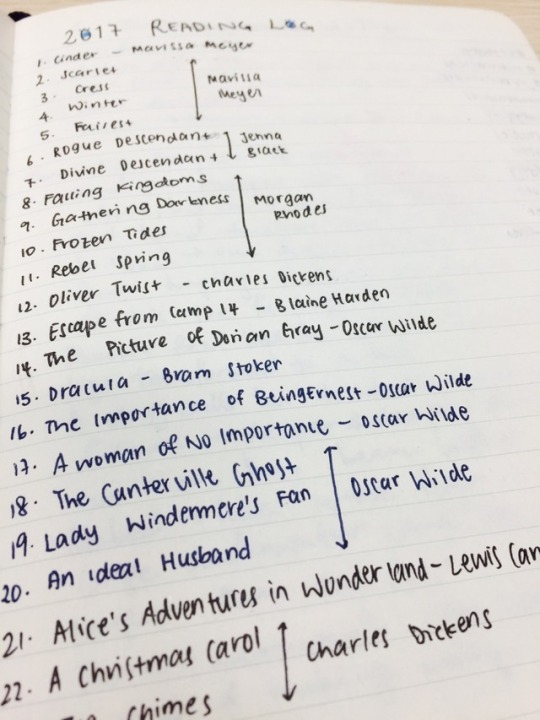 2017 READING LOG
1. Cinder - Marissa Meyer
2. Scarlet
3. Cress
4. Winter
5. Fairest
Marissa
Meyer
6. Rogue Descendant
7. Divine Descendant
Jenna
Black
8. Falling Kingdoms
9. Gathering Darkness
10. Frozen Tides
11. Rebel Spring
Morgan
Rhodes
12. Oliver Twist - Charles Dickens
13. Escape from Camp 14 - Blaine Harden
14. The Picture of Dorian Gray - Oscar Wilde
15. Dracula - Bram Stoker
16. The Importance of Being Ernest - Oscar Wilde
17. A woman of No Importance - Oscar Wilde
18. The Canterville Ghost
19. Lady Windermere's Fan
20. An Ideal Husband
Oscar Wilde
21. Alice's Adventures in Wonderland - Lewis Car
22. A Christmas Carol
Chimes
Charles Dickens